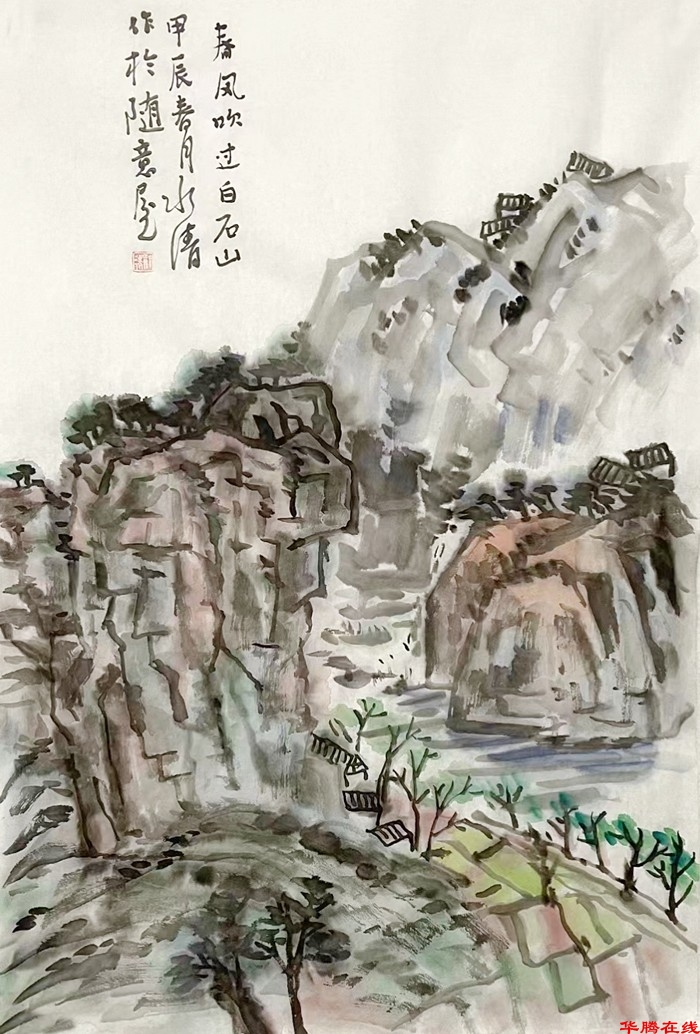 春风吹过白石山
甲辰春月水清
作于随意屋
华腾在线